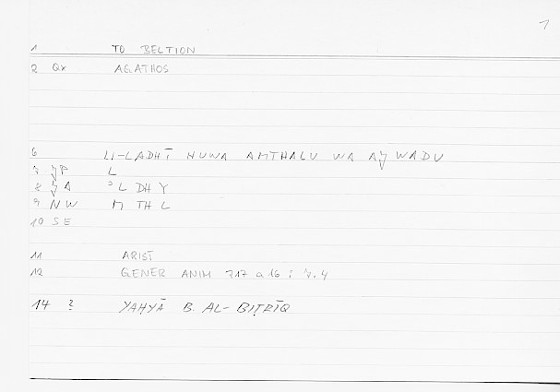 1
1 TO BELTION
2 Qx AGATHOS
6 LI-LADHĪ HUWA AMTHALU WA AǦWADU
7 ǦP L
8 ǦA ʾL DH Y
9 NW M TH L
10 SE
11 ARIST
12 GENER ANIM 717 a 16 ; 7.4
14 ? YAHYĀ B. AL-BIṬRĪQ